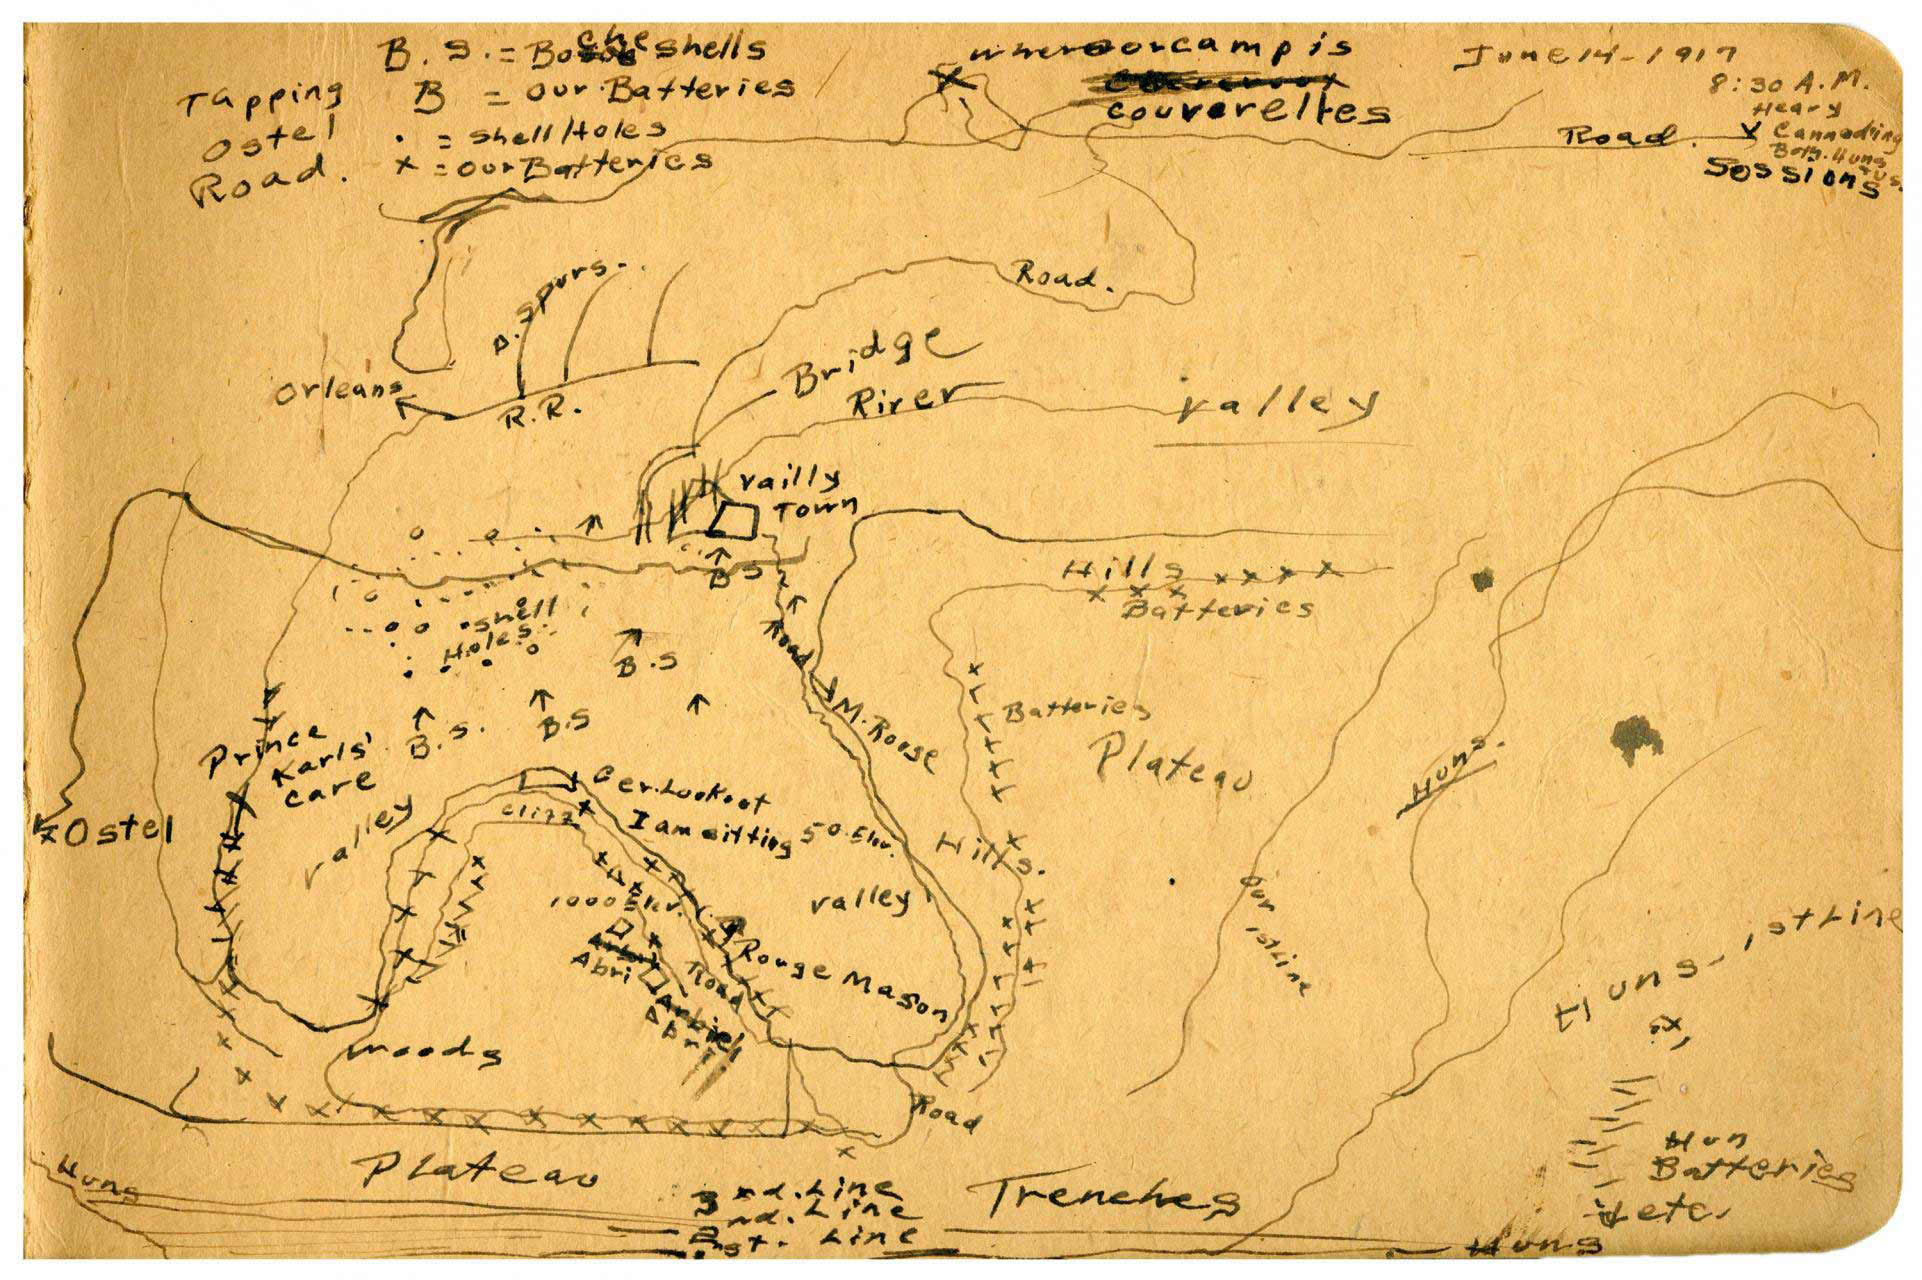 B. S. = Boche shells
B = our Batteries
. = shell/Holes
x = our Batteries
Tapping
Ostel
Road.
where our camp is
couvereltes
June 14 - 1917
8:30 A.M.
Heavy
Cannading
Both. Huns
+ us.
Road.
Sossions
A. Spurs.
Orleans
R.R.
Road.
Bridge
River
valley
Vailly
Town
B S
Hills
Batteries
shell
Holes
B.S
Road
M. Rouge
Batteries
Plateau
B.S.
B.S
Prince
Karls'
Care
Ostel
valley
Cer. Lookoot
I am sitting
50. Elev.
Hills.
Huns.
valley
1000 Elev.
Abri
Road
Rouge Mason
Abri
our 1st Line
Huns - 1st Line
woods
Road
Plateau
Huns
3rd. Line
2nd. Line
1st. Line
Trenches
Huns
Hun
Batteries
etc.